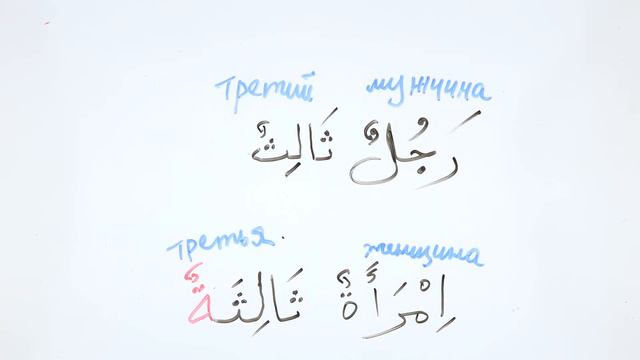 третий мужчина
رَجُلٌ ثَالِثٌ
третья женщина
اِمْرَأَةٌ ثَالِثَةٌ